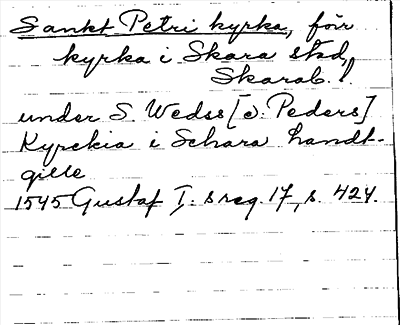 Sankt Petri kyrka, förr
kyrka i Skara stad,
Skarab. l.
under S. Wedss [ɔ: Peders]
Kyrckia i Schara handt-
gille
1545 Gustaf I: s reg. 17, s. 424.